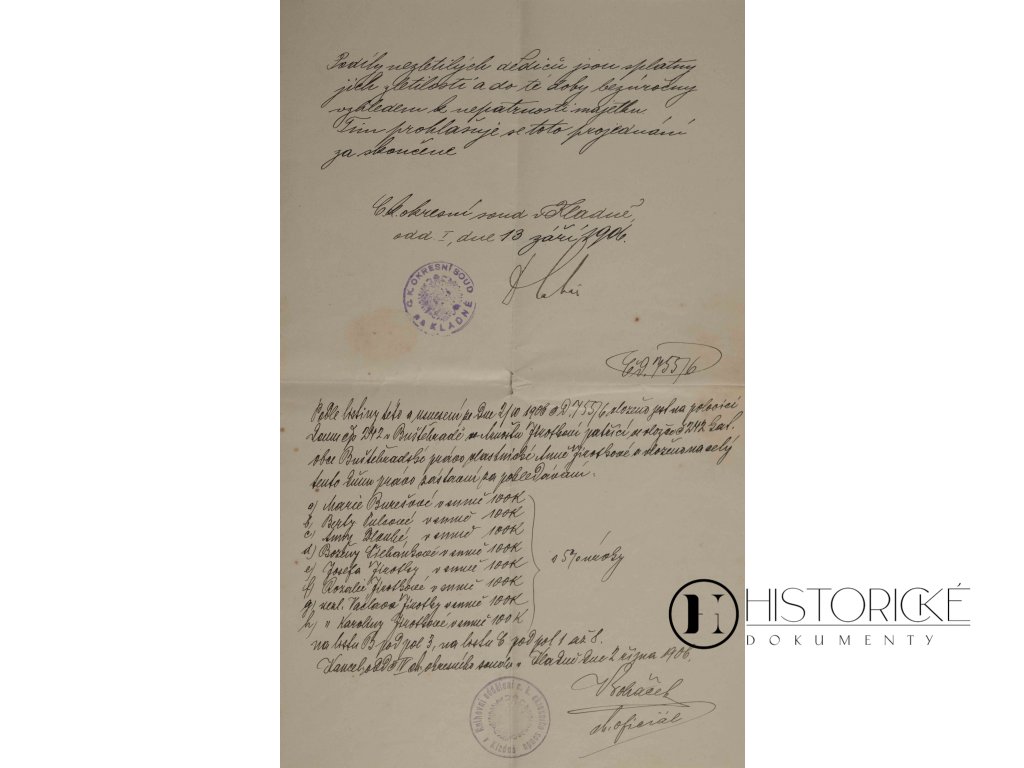 Podíly nezletilých dědiců jsou splatny
jich zletilostí a do té doby bezúročny
vzhledem k nepatrnosti majetku.
Tím prohlašuje se toto projednání
za skončené
C.k. okresní soud v Kladně,
odd. I, dne 13 září 1906.
C. K. OKRESNÍ SOUD
NA KLADNĚ
čd. 755/6
Podle listiny této a usnesení ze dne 2/10 1906 čd. 755/6 vloženo jest na polovici
domu čp 242 v Buštěhradě Jirotkovi patřící ve vložce č 242 kat.
obce Buštěhradské právo vlastnické Anně Jirotkové a vloženo na celý
tento dům právo zástavní za pohledávání:
a) Marie Burešové v summě 100K
b) Berty v summě 100K
c) Anny Dlouhé, v summě 100K
d) Boženy Štěbánkové v summě 100K
e) Josefa Jirotky v summě 100K
f) Rosalie Jirotkové v summě 100K
g) nezl. Václava Jirotky v summě 100K
h) n Karoliny Jirotkové v summě 100K
s 5% úroky
na listu B pod pol 3, na listu C pod pol 1 až 8.
Kancel. odd. IV ck. okresního soudu v Kladně dne 2 října 1906.
Knihovní oddělení c. k. okresního soudu
v Kladně
ck. oficiál
HISTORICKÉ
DOKUMENTY